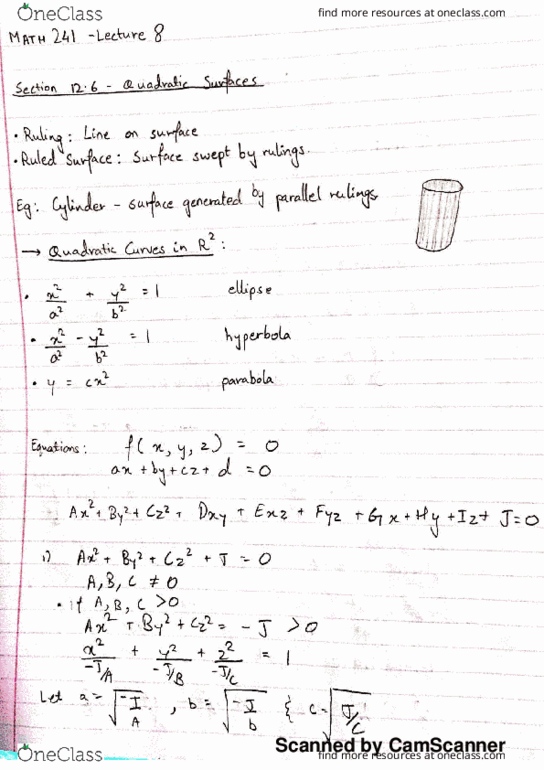 OneClass
find more resources at oneclass.com
MATH 241 - Lecture 8
Section 12.6 - Quadratic Surfaces
• Ruling : Line on surface
• Ruled Surface : Surface swept by rulings.
Eg: Cylinder - surface generated by parallel rulings
→ Quadratic Curves in R² :
• x²/a² + y²/b² = 1 ellipse
• x²/a² - y²/b² = 1 hyperbola
• y = cx² parabola
Equations : f(x, y, z) = 0
ax + by + cz + d = 0
Ax² + By² + Cz² + Dxy + Exz + Fyz + Gx + Hy + Iz + J = 0
1) Ax² + By² + Cz² + J = 0
A, B, C ≠ 0
• if A, B, C > 0
Ax² + By² + Cz² = -J > 0
x²/-J/A + y²/-J/B + z²/-J/C = 1
Let a = √-J/A , b = √-J/b { c = √J/C
Scanned by CamScanner
OneClass
find more resources at oneclass.com